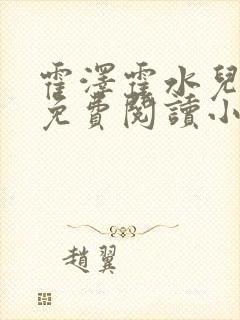 霍澤霍水兒
免費閱讀小
趙翼